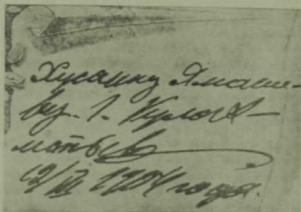 Хусаину Ямаше-
ву. Г. Кулах-
метьев
12/III 1904 года.